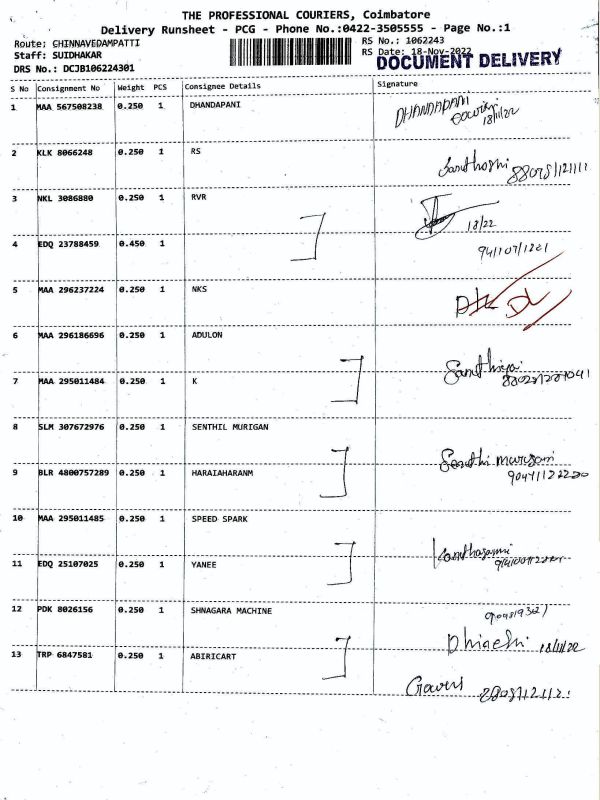 THE PROFESSIONAL COURIERS, Coimbatore
Delivery Runsheet - PCG - Phone No.:0422-3505555 - Page No.:1
Route: CHINNAVEDAMPATTI
RS No.: 1062243
Staff: SUIDHAKAR
RS Date: 18-Nov-2022
DOCUMENT DELIVERY
DRS No.: DCJB106224301
S No Consignment No Weight PCS Consignee Details Signature
1 MAA 567508238 0.250 1 DHANDAPANI
DHANDAPANI
18/11/22
2 KLK 8066248 0.250 1 RS
3 NKL 3086880 0.250 1 RVR
18/22
4 EDQ 23788459 0.450 1
5 MAA 296237224 0.250 1 NKS
DL
6 MAA 296186696 0.250 1 ADULON
7 MAA 295011484 0.250 1 K
8 SLM 307672976 0.250 1 SENTHIL MURIGAN
9 BLR 4800757289 0.250 1 HARAIAHARANM
10 MAA 295011485 0.250 1 SPEED SPARK
11 EDQ 25107025 0.250 1 YANEE
12 PDK 8026156 0.250 1 SHNAGARA MACHINE
18/11/22
13 TRP 6847581 0.250 1 ABIRICART